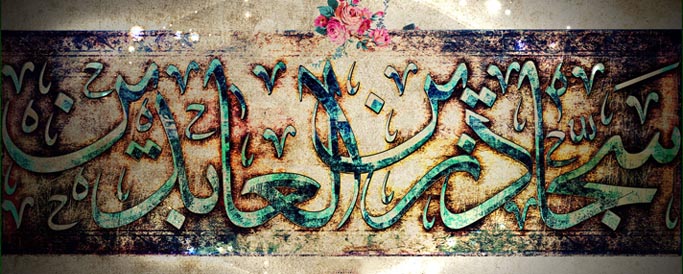 سَجّاد زین العابدین